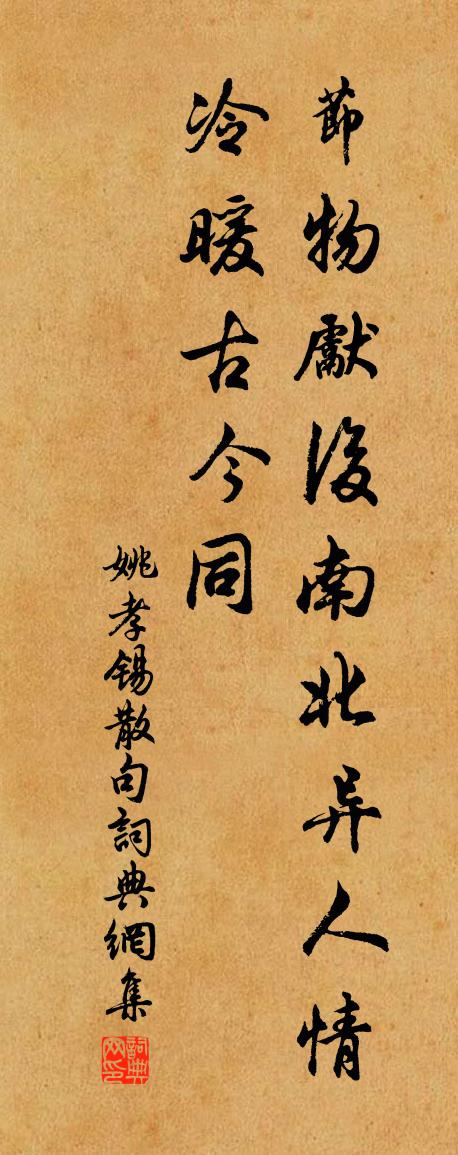 節物獻後南北异人情
冷暖古今同
姚孝錫散句詞典網集
詞典网印